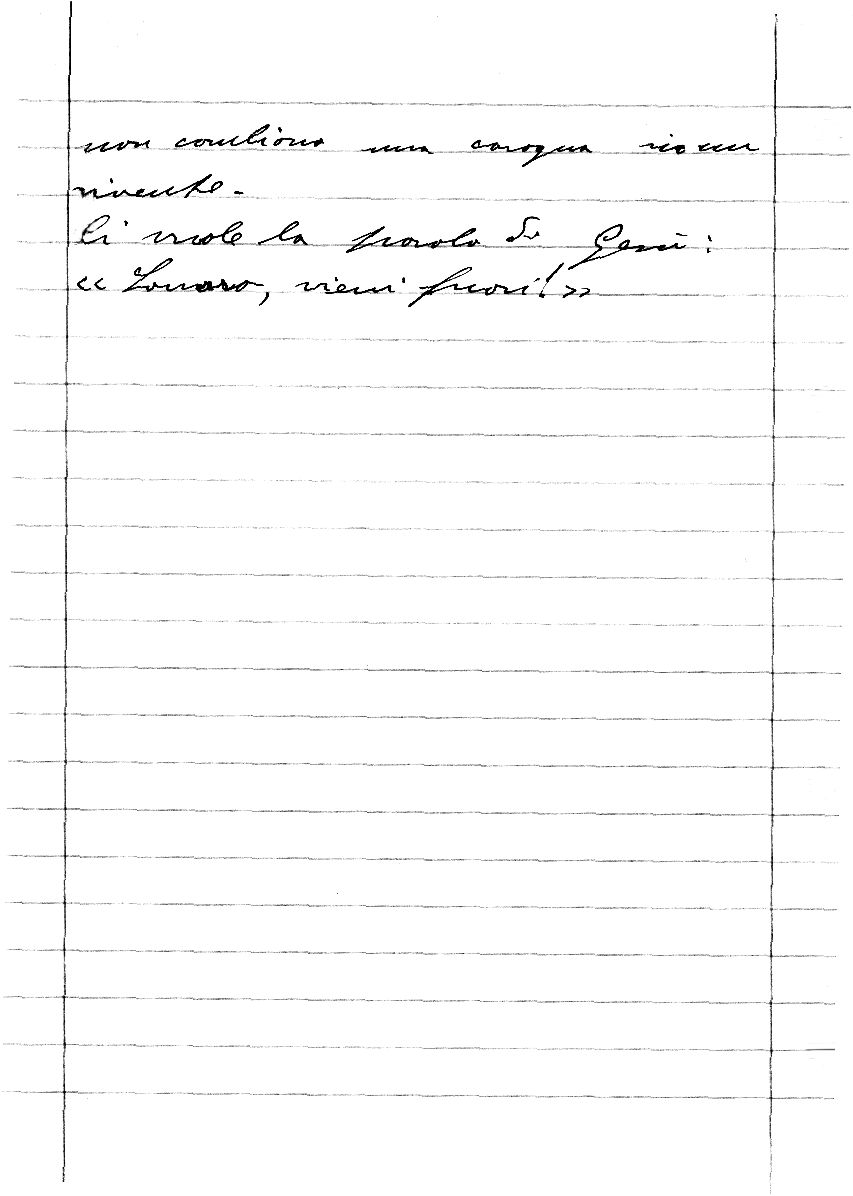 non cambiano una carogna in un
vivente.
Ci vuole la parola di Gesù:
<< Lazzaro, vieni fuori! >>